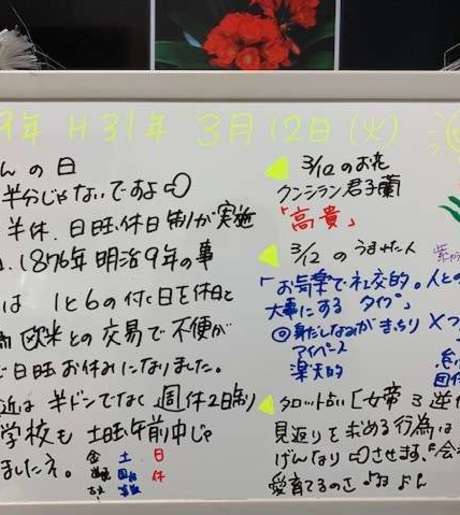 9年 H31年 3月12日(火)
んの日
半分じゃないですよ
半休、日曜休日制が実施
1876年明治9年の事
は 1と6の付く日を休日と
欧米との交易で不便が
で日曜お休みになりました。
近は 半ドンでなく 週休2日制
学校も 土曜午前中じゃ
ましたネ。
金 土 日
休
3/12のお花
クンシラン君子蘭
「高貴」
3/12のうまれた人
「お気楽で社交的。人との
大事にする タイプ」
◎身だしなみがきっちり
アイペース
楽天的
タロット占い [女帝 3 逆位
見返りを求める行為は
げんなり させます。
愛育てるのさ